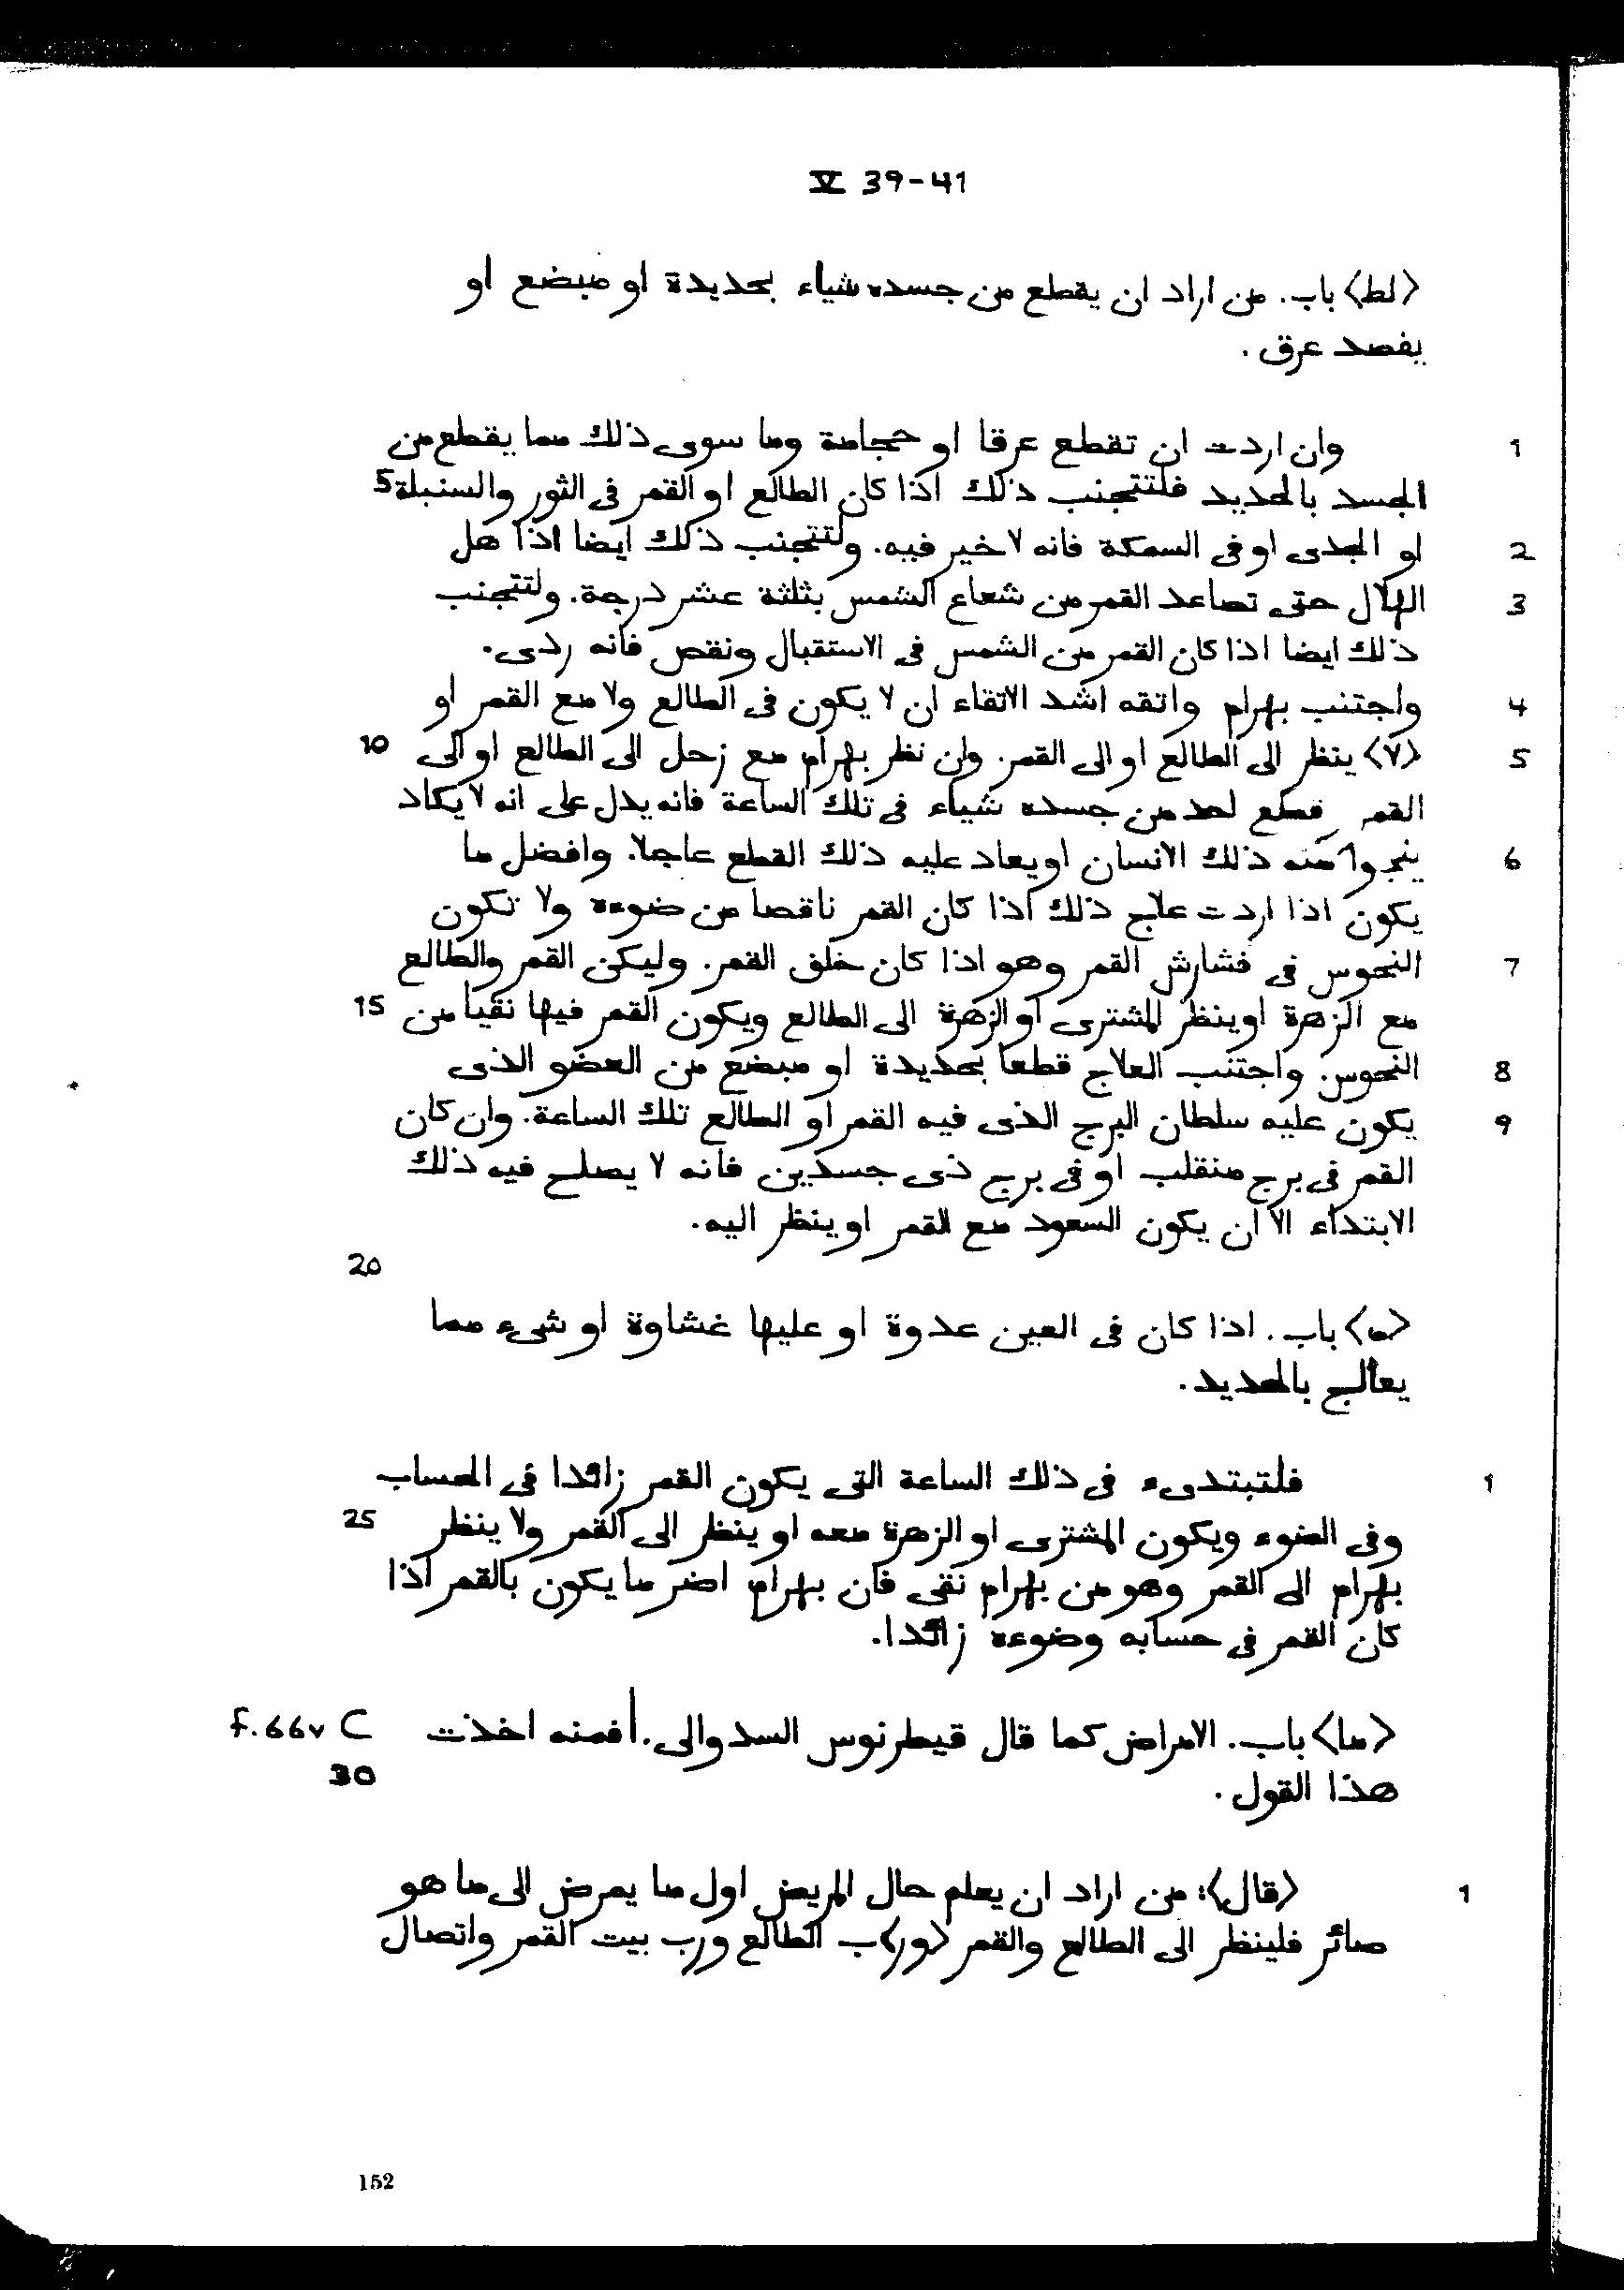 V 39-41
<لط> باب. من اراد ان يقطع من جسده شياء بحديدة او مبضع او
يفصد عرق.
1 وان اردت ان تقطع عرقا او حجامة وما سوى ذلك مما يقطع من
الجسد بالحديد فلتتجنب ذلك اذا كان الطالع او القمر فى الثور والسنبلة 5
2 او الجدى او فى السمكة فانه لا خير فيه. ولتتجنب ذلك ايضا اذا هل
3 الهلال حتى تصاعد القمر من شعاع الشمس بثلثة عشر درجة. ولتتجنب
ذلك ايضا اذا كان القمر من الشمس فى الاستقبال ونقص فانه ردى.
4 واجتنب بهرام واتقه اشد الاتقاء ان لا يكون فى الطالع ولا مع القمر او
5 <لا> ينظر الى الطالع او الى القمر. وان نظر بهرام مع زحل الى الطالع او الى 10
القمر فقطع احد من جسده شياء فى تلك الساعة فانه يدل على انه لا يكاد
6 ينجوا منه ذلك الانسان او يعاد عليه ذلك القطع عاجلا. وافضل ما
يكون اذا اردت علاج ذلك اذا كان القمر ناقصا من ضوءه ولا تكون
7 النحوس فى فشارش القمر وهو اذا كان خلف القمر. وليكن القمر والطالع
مع الزهرة او ينظر المشترى او الزهرة الى الطالع ويكون القمر فيها نقيا من 15
8 النحوس. واجتنب العلاج قطعا بحديدة او مبضع من العضو الذى
9 يكون عليه سلطان البرج الذى فيه القمر او الطالع تلك الساعة. وان كان
القمر فى برج منقلب او فى برج ذى جسدين فانه لا يصلح فيه ذلك
الابتداء الا ان يكون السعود مع القمر او ينظر اليه.
20
<م> باب. اذا كان فى العين عدوة او عليها غشاوة او شىء مما
يعالج بالحديد.
1 فلتبتدىء فى ذلك الساعة التى يكون القمر زائدا فى الحساب
وفى الضوء ويكون المشترى او الزهرة معه او ينظر الى القمر ولا ينظر 25
بهرام الى القمر وهو من بهرام نقى فان بهرام اضر ما يكون بالقمر اذا
كان القمر فى حسابه وضوءه زائدا.
<ما> باب. الامراض كما قال قيطرنوس السدوالى. أفمنه اخذت f. 66v C
هذا القول. 30
1 <قال>: من اراد ان يعلم حال المريض اول ما يمرض الى ما هو
صائر فلينظر الى الطالع والقمر <ور>ب الطالع ورب بيت القمر واتصال
152